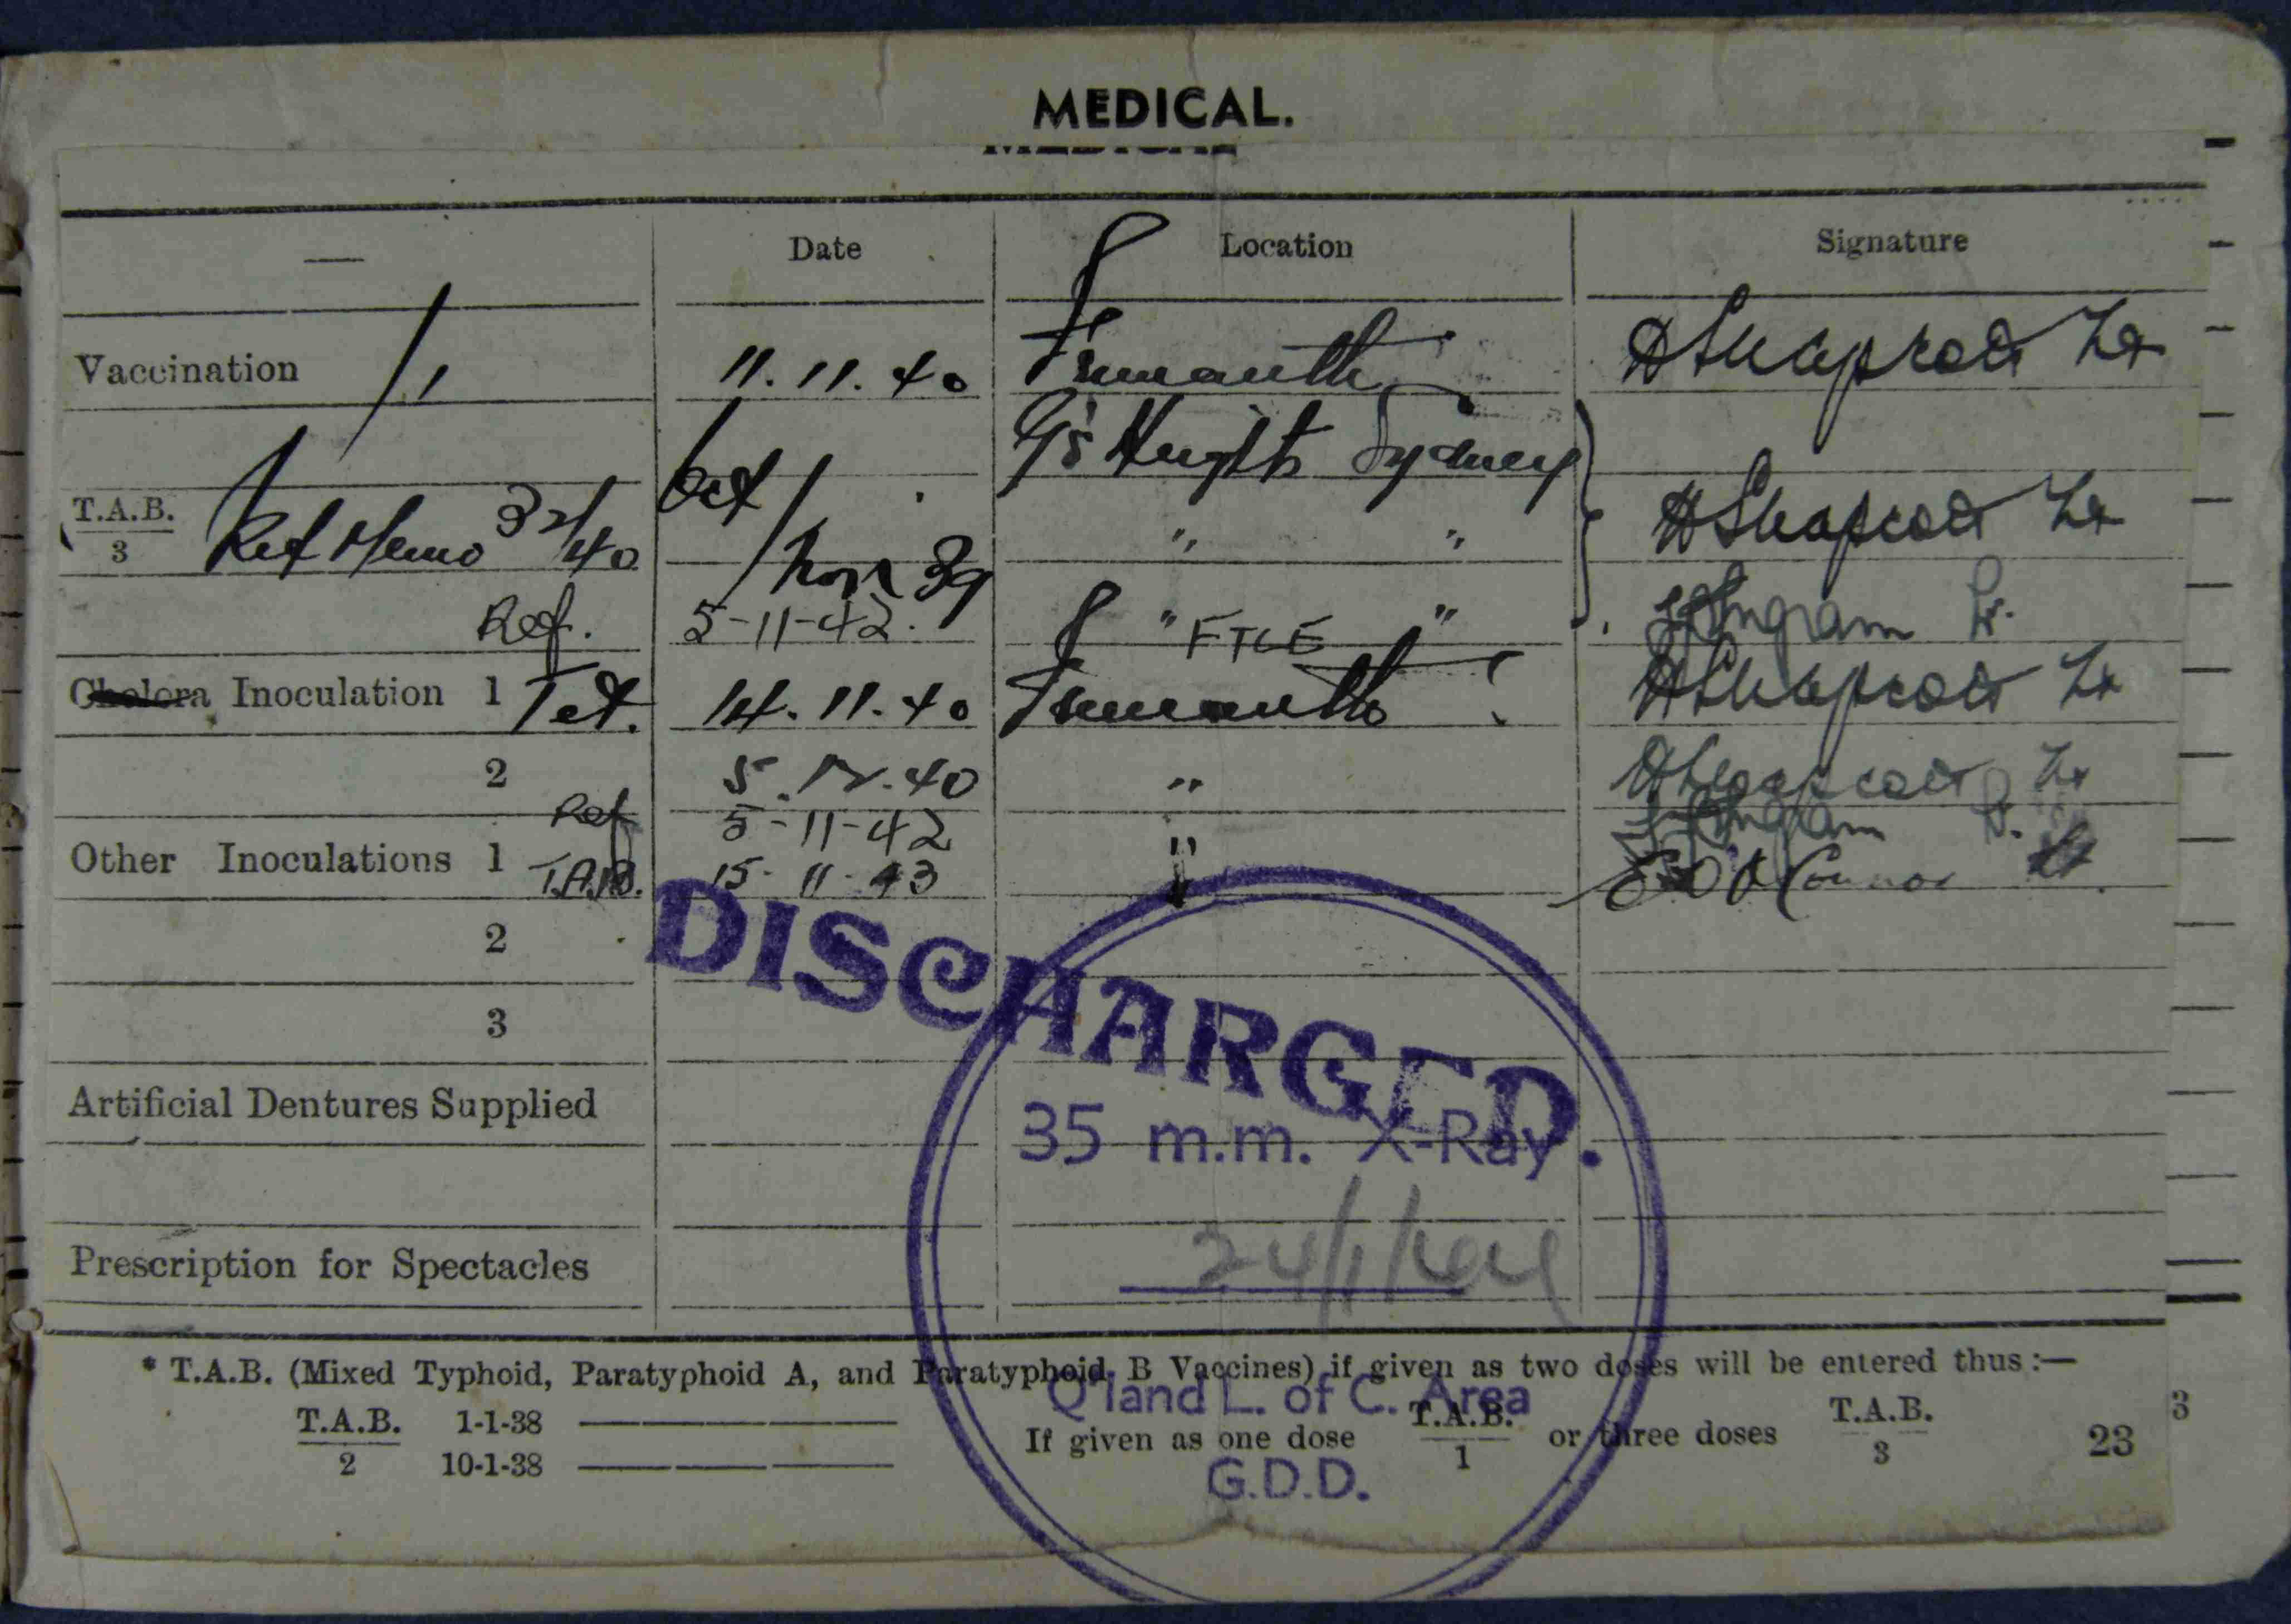 MEDICAL.
— Date Location Signature
Vaccination 11.11.40 Fremantle H Shapcott Lt
G's Heights Sydney
T.A.B. Oct
3 Ref Memo 32/40 " " H Shapcott Lt
Nov 39
Ref. 5-11-42. " FTLE " Ingram Lt.
Cholera Inoculation 1 Tet. 14.11.40 Fremantle H Shapcott Lt
2 5.12.40 " H Shapcott Lt
Ref 5-11-42 " Ingram Lt.
Other Inoculations 1 T.A.B. 15-11-43 " O'Connor Lt.
2
3
DISCHARGED.
Artificial Dentures Supplied
35 m.m. X-Ray
24/1/44
Prescription for Spectacles
* T.A.B. (Mixed Typhoid, Paratyphoid A, and Paratyphoid B Vaccines) if given as two doses will be entered thus :—
Q'land L. of C. Area
T.A.B. 1-1-38
2 10-1-38
If given as one dose T.A.B. 1 or three doses T.A.B. 3
G.D.D.
23
3